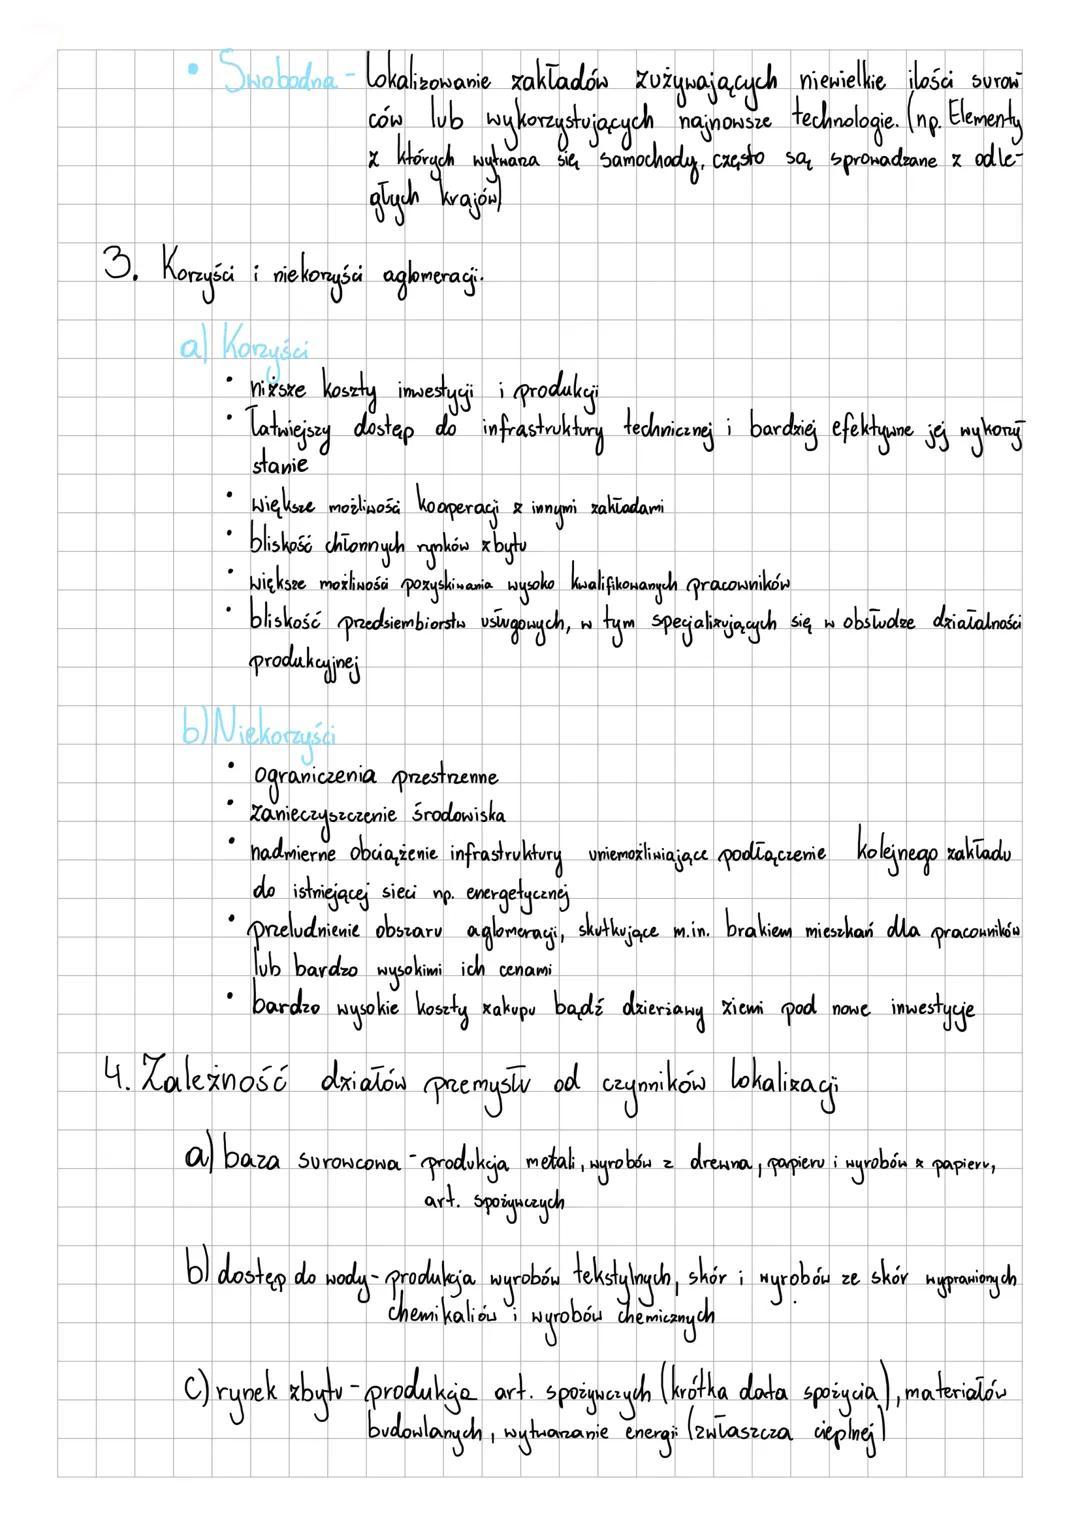 • Swobodna - lokalizowanie zakładów zużywających niewielkie ilości surow
ców lub wykorzystujących najnowsze technologie. (np. Elementy
z których wytwarza się samochody, często są sprowadzane z odle-
głych krajów)
3. Korzyści i niekorzyści aglomeracji.
a) Korzyści
• niższe koszty inwestycji i produkcji
• łatwiejszy dostęp do infrastruktury technicznej i bardziej efektywne jej wykorzy
stanie
• większe możliwości kooperacji z innymi zakładami
• bliskość chłonnych rynków zbytu
• większe możliwości pozyskiwania wysoko kwalifikowanych pracowników
• bliskość przedsiembiorstw usługowych, w tym specjalizujących się w obsłudze działalności
produkcyjnej
b) Niekorzyści
• ograniczenia przestrzenne
• zanieczyszczenie środowiska
• nadmierne obciążenie infrastruktury uniemożliwiające podłączenie kolejnego zakładu
do istniejącej sieci np. energetycznej
• przeludnienie obszaru aglomeracji, skutkujące m.in. brakiem mieszkań dla pracowników
lub bardzo wysokimi ich cenami
• bardzo wysokie koszty zakupu bądź dzierżawy ziemi pod nowe inwestycje
4. Zależność działów przemysłu od czynników lokalizacji
a) baza surowcowa - produkcja metali, wyrobów z drewna, papieru i wyrobów z papieru,
art. spożywczych
b) dostęp do wody - produkcja wyrobów tekstylnych, skór i wyrobów ze skór wyprawionych
chemikaliów i wyrobów chemicznych
c) rynek zbytu - produkcja art. spożywczych (krótka data spożycia), materiałów
budowlanych, wytwarzanie energii (zwłaszcza cieplnej)